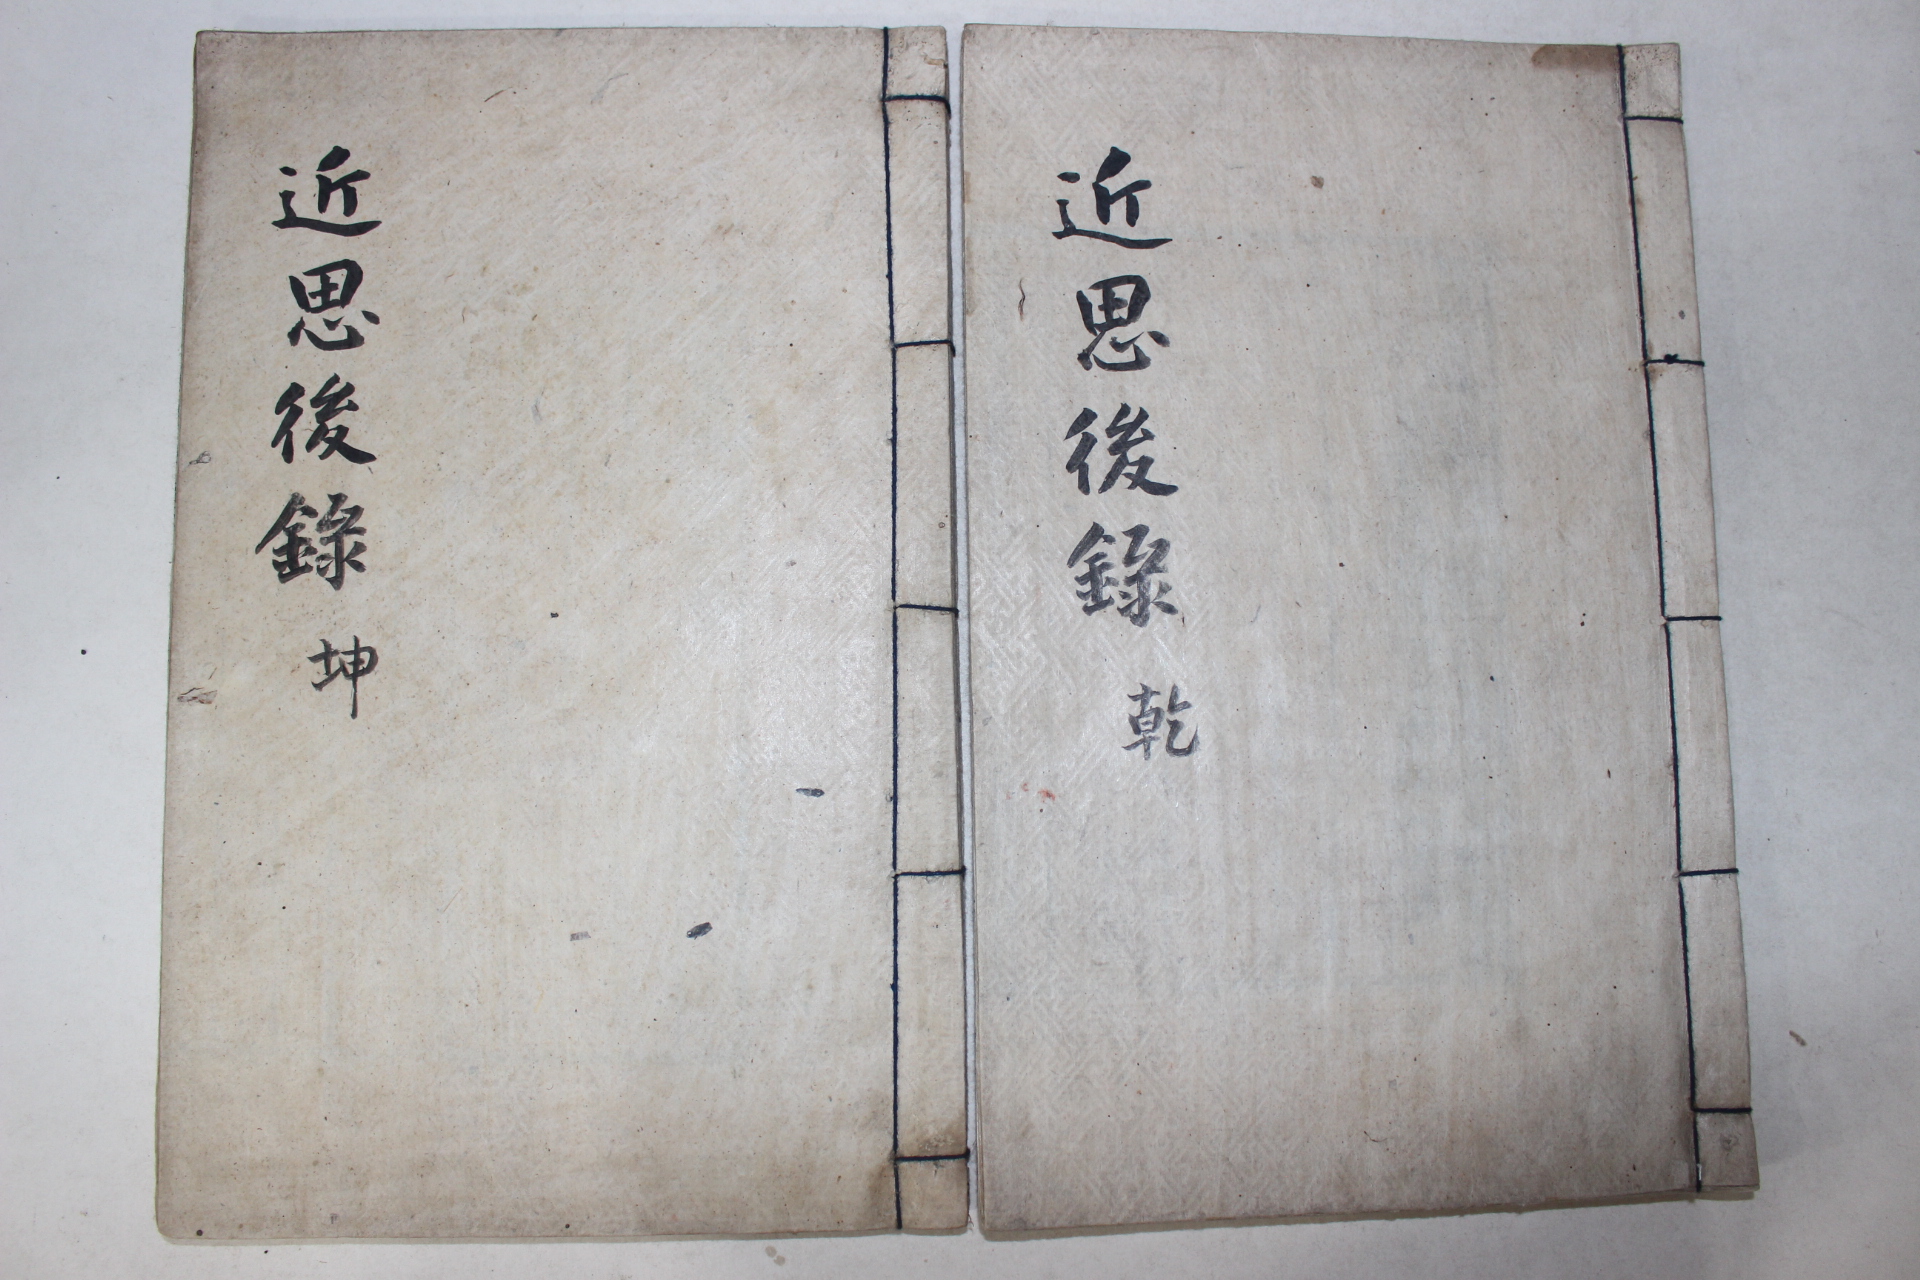 近思後錄 乾
近思後錄 坤